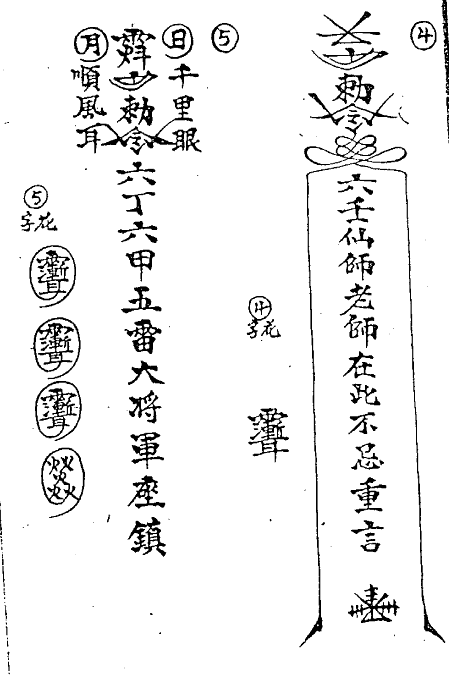 ④
勅令
六壬仙師老師在此不忌重言
④
字花
⑤
日 千里眼
勅令
六丁六甲五雷大将軍座鎮
月 順風耳
⑤
字花